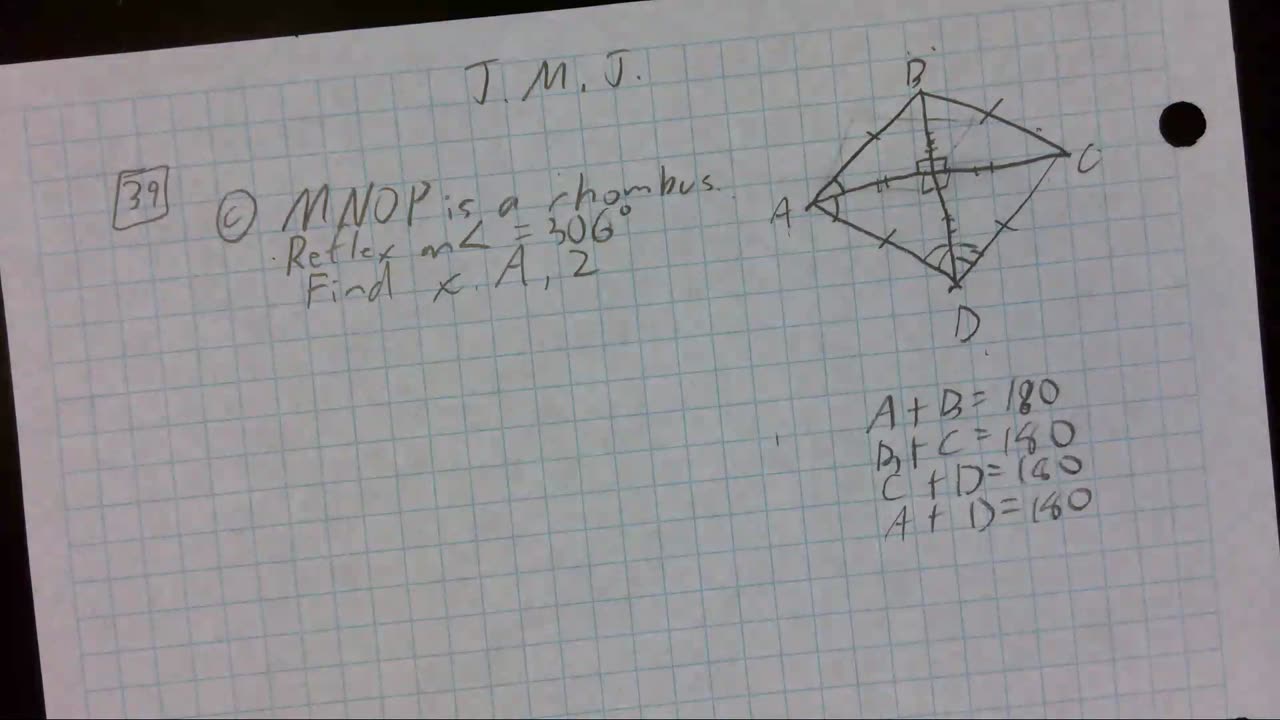 J. M. J.
39
c MNOP is a rhombus.
Reflex m∠ = 306°
Find x. A, Z
B
C
A
D
A + B = 180
B + C = 180
C + D = 180
A + D = 180